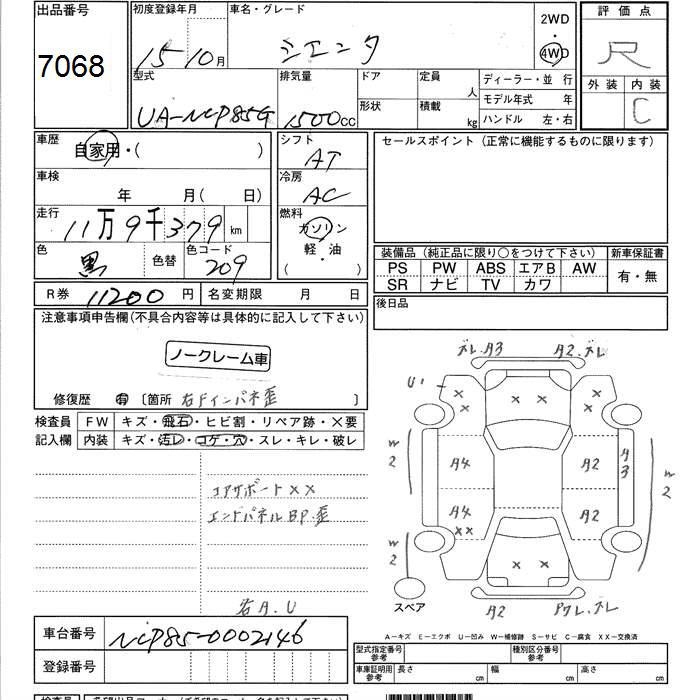 出品番号 初度登録年月 車名・グレード 2WD 評価点
7068 15 10月 シエンタ 4WD R
型式 排気量 ドア 定員 人 ディーラー・並 行 外装 内装
UA-NCP85G 1500cc 形状 積載 kg モデル年式 年 C
ハンドル 左・右
車歴 自家用・( ) シフト AT セールスポイント (正常に機能するものに限ります)
車検 年 月( 日) 冷房 AC
走行 11万9千379km 燃料 ガソリン
色 黒 色替 色コード 209 軽・油 ( )
装備品 (純正品に限り○をつけて下さい) 新車保証書
PS PW ABS エアB AW 有・無
SR ナビ TV カワ
R券 11200円 名変期限 月 日 後日品
注意事項申告欄(不具合内容等は具体的に記入して下さい)
ノークレーム車
修復歴 有 〔箇所 右Fインパネ歪 〕
検査員 FW キズ・飛石・ヒビ割・リペア跡・×要
記入欄 内装 キズ・汚レ・コゲ・穴・スレ・キレ・破レ
コアサポート××
エンドパネルBP.歪
右A.U
ズレ A3 A2.ズレ
U1 × × × × × ×
W2 A4 A2 A3 W2
A4 ×× A2
W2 × ×
スペア A2 Pワレ.ズレ
A-キズ E-エクボ U-凹み W-補修跡 S-サビ C-腐食 XX-交換済
車台番号 NCP85-0002146 型式指定番号 参考 種別区分番号 参考
登録番号 車庫証明用 参考 長さ cm 幅 cm 高さ cm